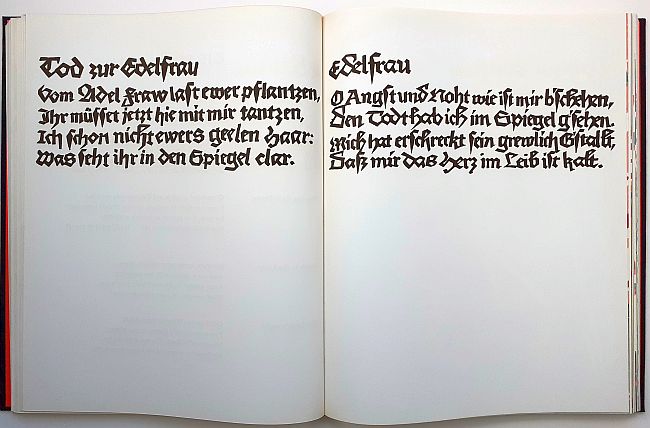 Tod zur Edelfrau
Vom Adel Fraw last ewer pflantzen,
Ihr müsset jetzt hie mit mir tantzen,
Ich schon nicht ewers geelen Haar:
Was seht ihr in den Spiegel clar.
Edelfrau
O Angst und Noht wie ist mir b'schehen,
Den Todt hab ich im Spiegel g'sehen.
Mich hat erschreckt sein grewlich G'stallt,
Daß mir das Herz im Leib ist kalt.